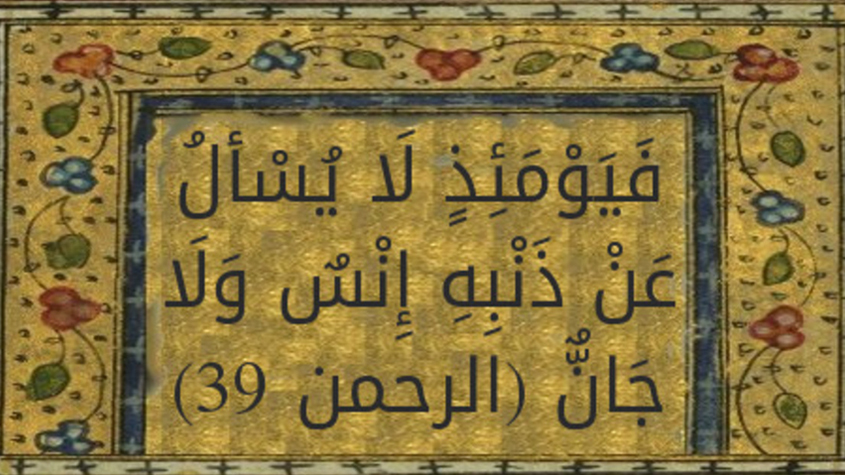 فَيَوْمَئِذٍ لَا يُسْألُ
عَنْ ذَنْبِهِ إِنْسٌ وَلَا
جَانٌّ (الرحمن 39)